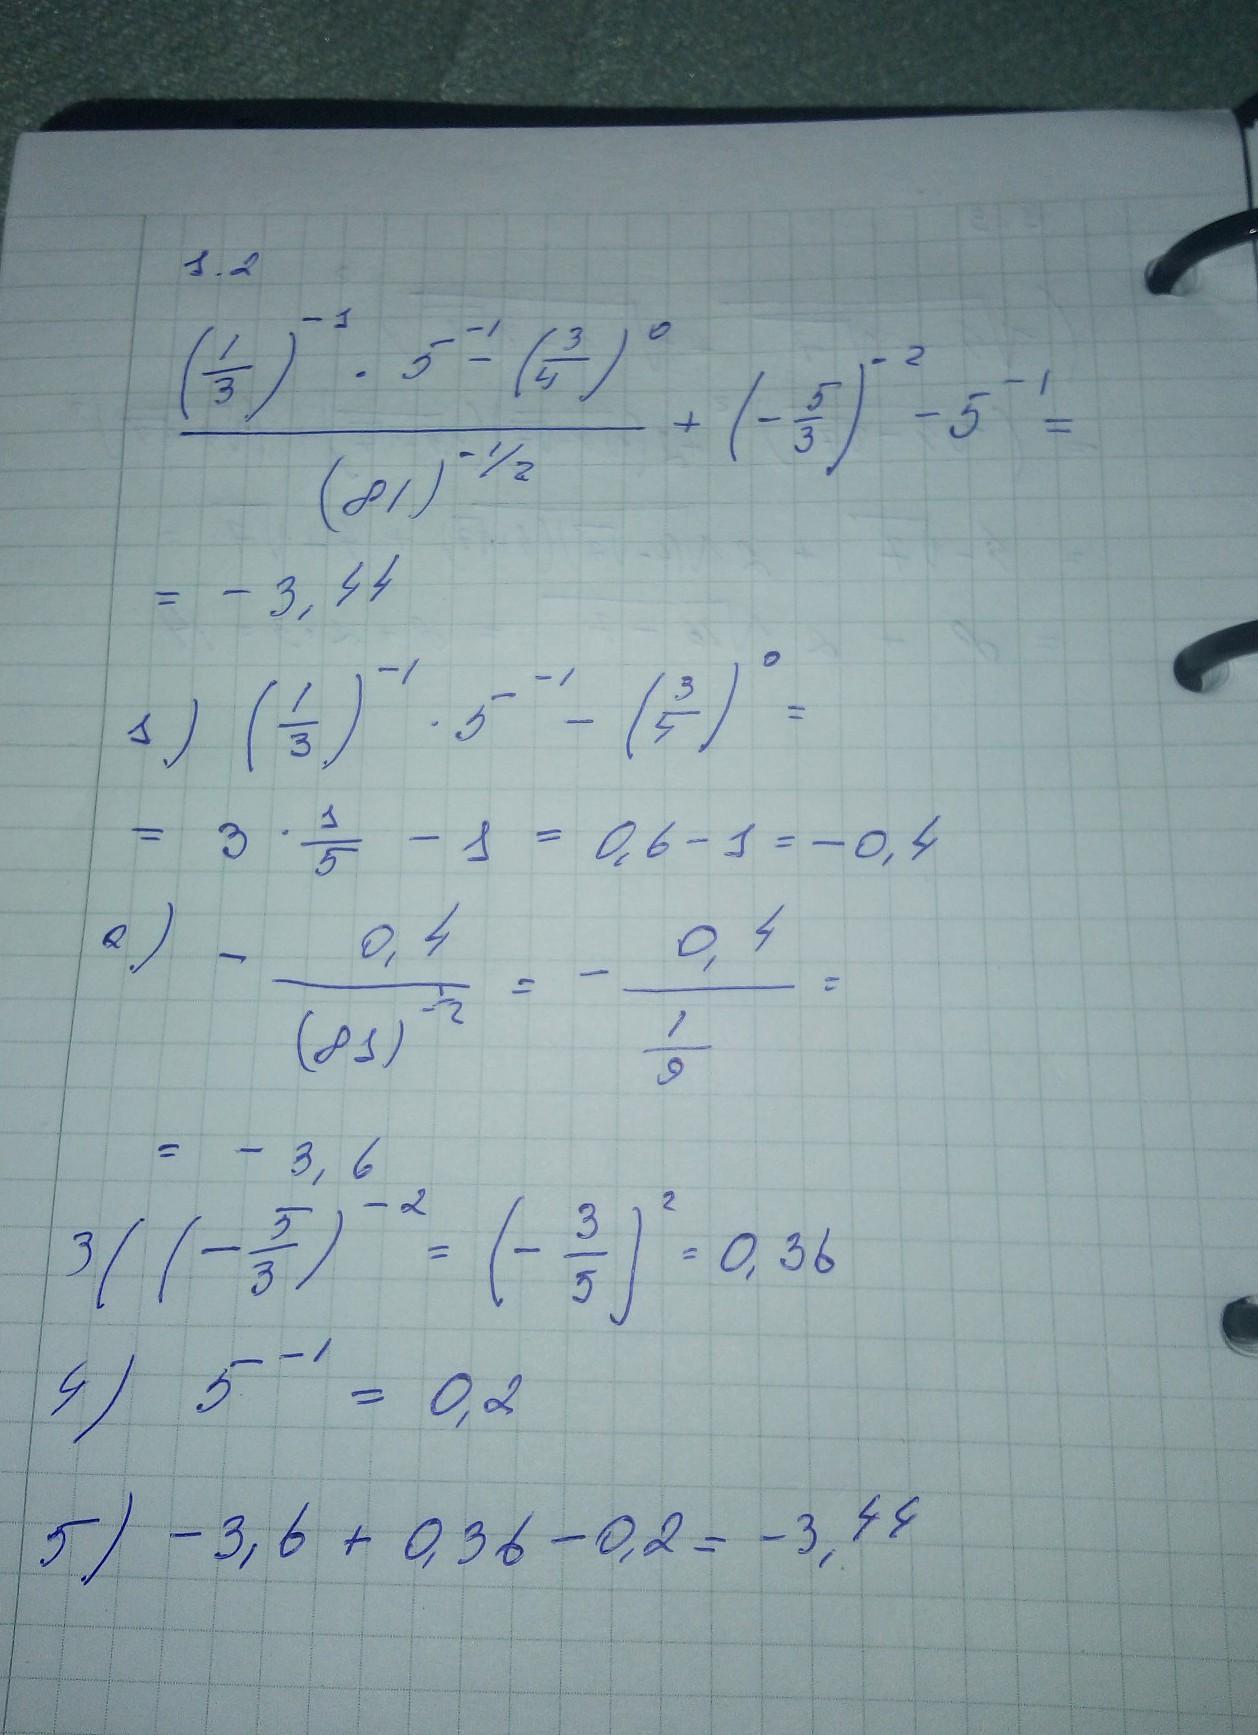 1.2
((1/3)^-1 · 5^-1 - (3/4)^0) / (81)^-1/2 + (-5/3)^-2 - 5^-1 =
= - 3,44
1) (1/3)^-1 · 5^-1 - (3/4)^0 =
= 3 · 1/5 - 1 = 0,6 - 1 = -0,4
2) - 0,4 / (81)^-1/2 = - 0,4 / (1/9) =
= - 3,6
3( (-5/3)^-2 = (-3/5)^2 = 0,36
4) 5^-1 = 0,2
5) -3,6 + 0,36 - 0,2 = -3,44